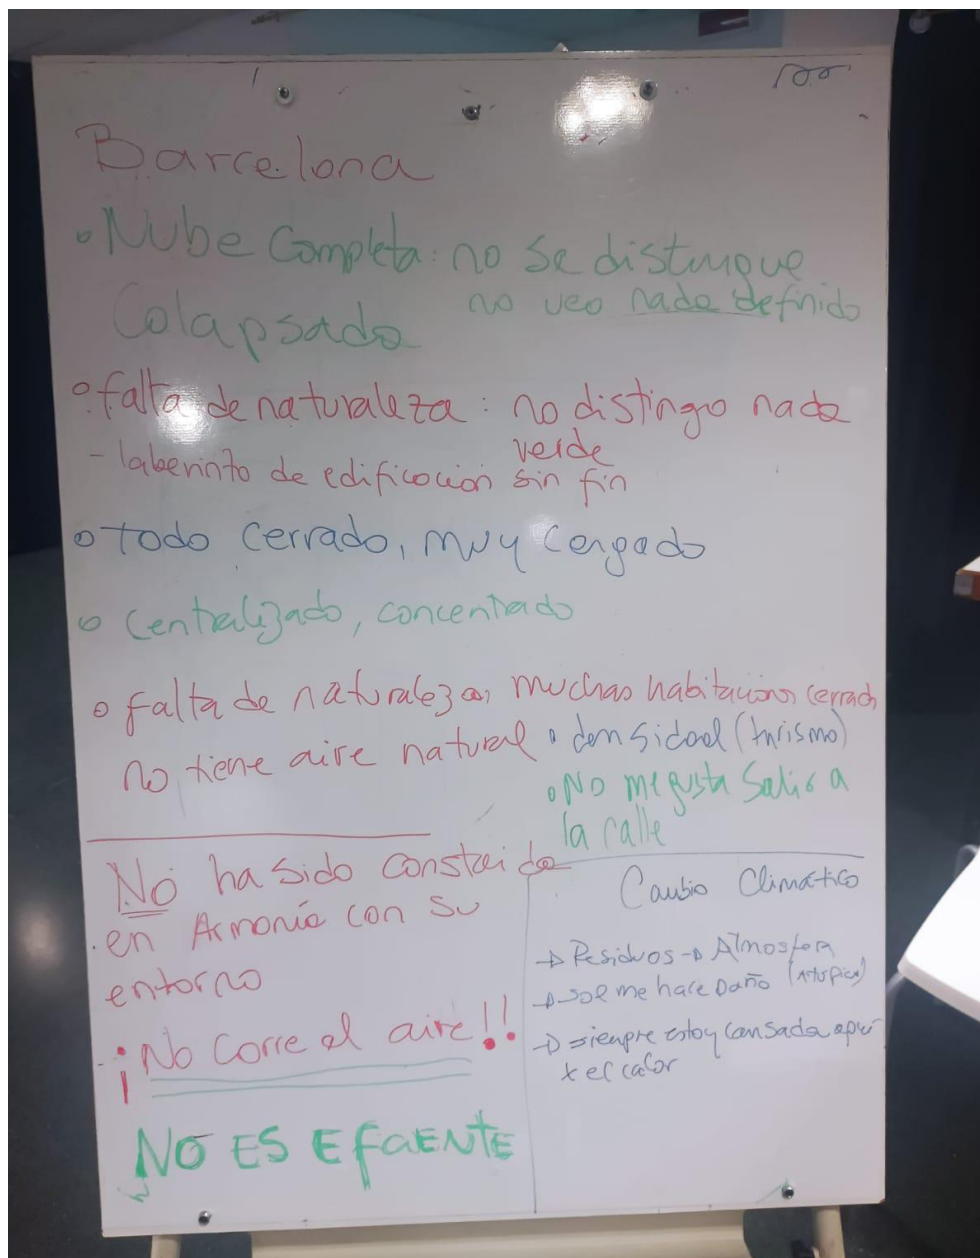 Barcelona
• Nube Completa: no se distingue
Colapsado no veo nada definido
• falta de naturaleza: no distingo nada
verde
- laberinto de edificación sin fin
• todo cerrado, muy cargado
• Centralizado, concentrado
• falta de naturaleza, muchas habitacions cerrads
no tiene aire natural • densidad (turismo)
• No me gusta Salir a
la calle
No ha sido construida
en Armonía con su
entorno
¡No corre el aire!!
NO ES EfICIENTE
Cambio Climático
→ Residuos → Atmosfera
→ Sol me hace Daño (Atopica)
→ siempre estoy cansada aquí
x el calor